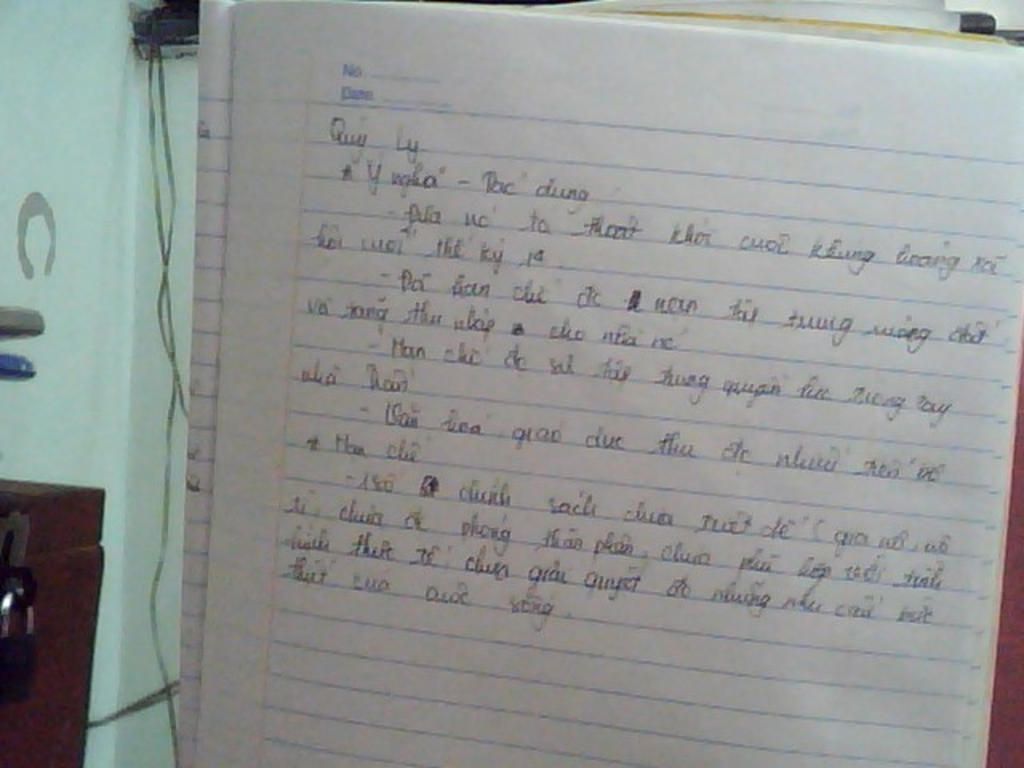 No
Date
Quý Ly
* Ý nghĩa - Tác dụng
- Đưa nc ta thoát khỏi cuộc khủng hoảng xã
hội cuối thế kỷ 14
- Đã hạn chế đc nạn tập trung ruộng đất
và tăng thu nhập cho nhà nc
- Hạn chế đc sự tập trung quyền lực trong tay
nhà Trần
- Văn hoá giáo dục thu đc nhiều tiến bộ
* Hạn chế
- 1 số chính sách chưa triệt để (gia nô, nô
tì chưa đc phóng thân phận, chưa phù hợp với tình
hình thực tế, chưa giải quyết đc những nhu cầu bức
thiết của cuộc sống.